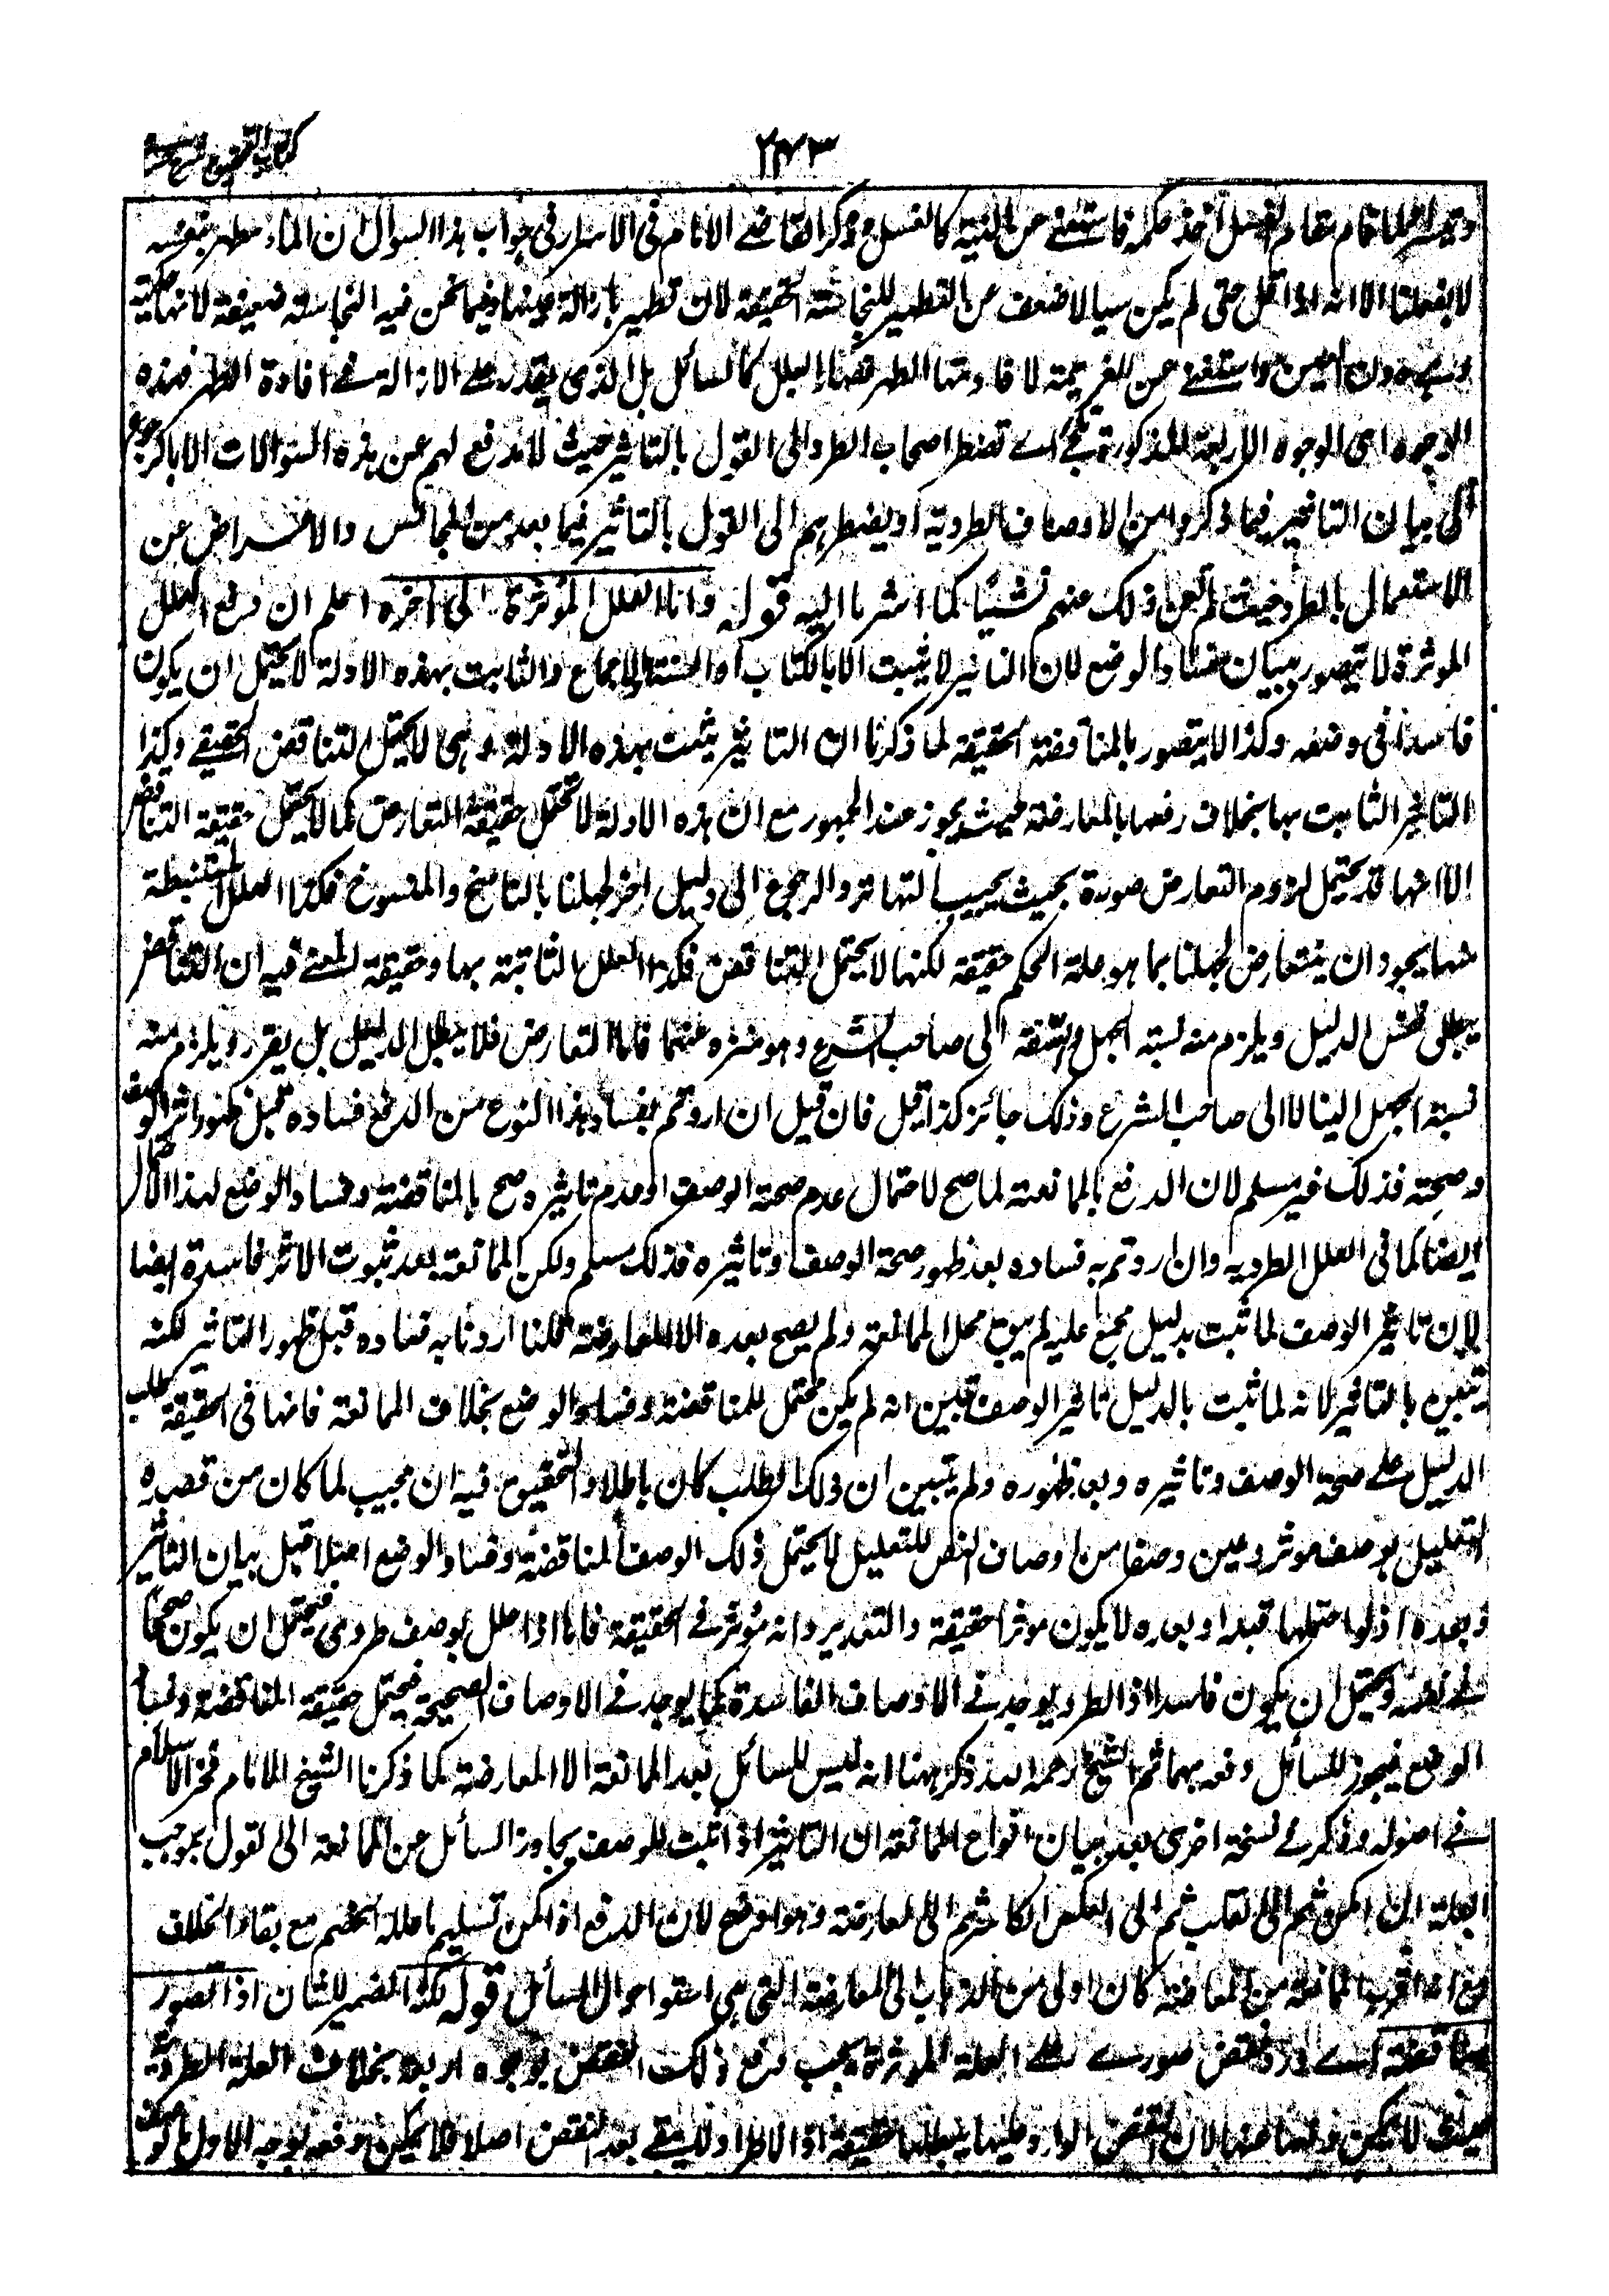 ٢٤٣
لما قام مقام الغسل أخذ حكمه فاستغنى عن النية كالغسل وذكر القاضى الامام فى الاسرار فى جواب هذا السوال ان الماء مطهر بنفسه
لا بفعلنا الا انه اذا قل حتى لم يكن سيالا ضعف عن التطهير للنجاسة الحقيقة لان تطهير بازالة عينها وفيما نحن فيه النجاسة ضعيفة لانها حكمية
دون العين واستغنى عن العزيمة لافادتها الطهر فصار البلل كالسائل بل الذى يقدر على الازالة فى افادة الطهر فهذه
الوجوه اى الوجوه الاربعة المذكورة تلجئ اى تضطر اصحاب الطرد الى القول بالتاثير حيث لا مدفع لهم عن هذه السوالات الا بالرجوع
الى بيان التاثير فيما ذكروا من الاوصاف الطردية او يضطرهم الى القول بالتاثير فيما بعد من المجالس والاعراض عن
الاستعمال بالطرد حيث لم يغن ذلك عنهم شيئا كما اشرنا اليه قوله واما العلل الموثرة الى آخره اعلم ان دفع العلل
الموثرة لا يتصور ببيان فساد الوضع لان التاثير لا يثبت الا بالكتاب او السنة او الاجماع والثابت بهذه الادلة لا يحتمل ان يكون
فاسدا فى وضعه وكذا لا يتصور بالمناقضة الحقيقة لما ذكرنا ان التاثير يثبت بهذه الادلة وهى لا يحتمل التناقض الحقيقى وكذا
التاثير الثابت بها بخلاف دفعها بالمعارضة حيث يجوز عند الجمهور مع ان هذه الادلة لا تحتمل حقيقة التعارض كما لا يحتمل حقيقة التناقض
الا انها قد يحتمل لزوم التعارض صورة بحيث يجب التهاتر والرجوع الى دليل اخر لجهلنا بالناسخ والمنسوخ فكذا العلل المستنبطة
منها يجوز ان يتعارض لجهلنا بما هو علة الحكم حقيقة لكنها لا يحتمل التناقض فكذا العلل الثابتة بها وحقيقة المعنى فيه ان التناقض
يبطل نفس الدليل ويلزم منه نسبة الجهل والسفه الى صاحب الشرع وهو منزه عنهما فاما التعارض فلا يبطل الدليل بل يقرره ويلزم منه
نسبة الجهل الينا لا الى صاحب الشرع وذلك جائز كذا قيل فان قيل ان اردتم بفساد هذا النوع من الدفع فساده قبل ظهور اثر الوصف
وصحته فذلك غير مسلم لان الدفع بالممانعة لما صح لاحتمال عدم صحة الوصف او عدم تاثيره صح بالمناقضة وفساد الوضع لهذا الاحتمال
ايضا كما فى العلل الطردية وان اردتم به فساده بعد ظهور صحة الوصف وتاثيره فذلك مسلم ولكن الممانعة بعد ثبوت الاثر فاسدة ايضا
لان تاثير الوصف لما ثبت بدليل مجمع عليه لم يبق محل الممانعة ولم يصح بعده الا المعارضة قلنا اردنا به فساده قبل ظهور التاثير لكنه
يتبين بالتاثير لانه لما ثبت بالدليل تاثير الوصف تبين انه لم يكن محتمل للمناقضة وفساد الوضع بخلاف الممانعة فانها فى الحقيقة طلب
الدليل على صحة الوصف وتاثيره وبعد ظهوره لم يتبين ان ذلك الطلب كان باطلا والتحقيق فيه ان مجيب لما كان من قصده
التعليل بوصف موثر وعين وصفا من اوصاف النص للتعليل لا يحتمل ذلك الوصف المناقضة وفساد الوضع اصلا قبل بيان التاثير
وبعده اذ لو احتملها قبله او بعده لا يكون موثرا حقيقة والتقدير انه موثر فى الحقيقة فاما اذا علل بوصف طردى فيحتمل ان يكون صحيحا
فى نفسه ويحتمل ان يكون فاسدا اذ الطرد يوجد فى الاوصاف الفاسدة كما يوجد فى الاوصاف الصحيحة فيحتمل حقيقة المناقضة وفساد
الوضع فيجوز للسائل دفعه بهما ثم الشيخ رحمه الله ذكر ههنا انه ليس للسائل بعد الممانعة الا المعارضة كما ذكرنا الشيخ الامام فخر الاسلام
فى اصوله وذكر فى نسخة اخرى بعد بيان انواع الممانعة ان التاثير اذا ثبت للوصف يجاوز السائل عن الممانعة الى القول بموجب
العلة ان امكن ثم الى القلب ثم الى العكس الكاسر ثم الى المعارضة وهو اوضح لان الدفع اذا امكن تسليم ما علله الخصم مع بقاء الخلاف
كان اولى من الذهاب الى المعارضة التى هى اسقوا حوال السائل قوله لكنه الضمير للشان اذا تصور
مناقضة اى ورد نقض صورى على العلة الموثرة يجب دفع ذلك النقض بوجوه اربعة بخلاف العلة الطردية
لا يمكن دفعها عنها لان النقض الوارد عليها يبطلها حقيقة اذ الاطراد لا يبقى بعد النقض اصلا فلا يمكن دفعه بوجه الاول بالوصف